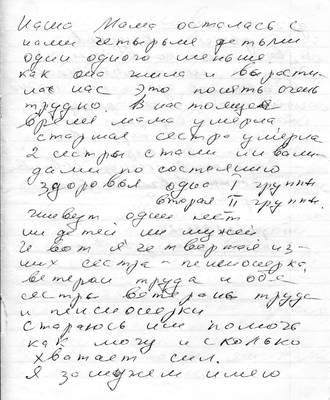 Наша Мама осталась с
нами четырьмя детьми
один одного меньше.
как она жила и вырасти-
ла нас это понять очень
трудно. В настоящее
время мама умерла
старшая сестра умерла
2 сестры стали инвали-
дами по состоянию
здоровья одна I группы
вторая II группы.
живут одни нет
ни детей ни мужей
И вот я четвертая из
них сестра - пенсионерка,
ветеран труда и обе
сестры ветераны труда
и пенсионерки
стараюсь им помочь
как могу и сколько
хватает сил.
Я замужем имею